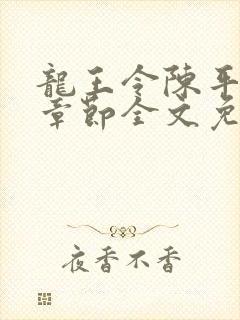 龍王令陳平
章節全文免
夜香不香